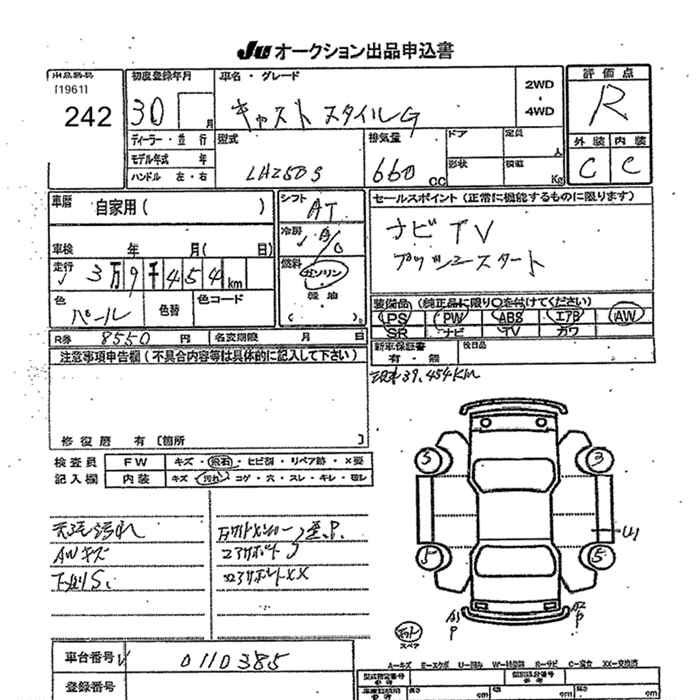 JU オークション出品申込書
[1961]
242
初度登録年月
30 月
車名・グレード
キャスト スタイルG
2WD
・
4WD
評価点
R
外装 内装
C C
ディーラー・並行
モデル年式 年
ハンドル 左・右
型式
LA250S
排気量
660 CC
ドア
形状
定員 人
積載 Kg
車歴
自家用( )
車検 年 月( 日)
走行 3万9千454km
色
パール
色替
色コード
シフト
AT
冷房
燃料
ガソリン
軽油
( )
セールスポイント(正常に機能するものに限ります)
ナビ TV
プッシュスタート
装備品(純正品に限り○を付けてください)
PS PW ABS エアB AW
SR ナビ TV カワ
R券 8550円 名変期限 月 日
新車保証書
有・無
後日品
注意事項申告欄(不具合内容等は具体的に記入して下さい)
現車39,454KM
修復歴 有〔箇所 〕
検査員
記入欄
FW キズ・飛石・ヒビ割・リペア跡・X要
内装 キズ・汚れ・コゲ・穴・スレ・キレ・
天張汚れ
AWキズ
下回りS.
コアサポート
コアサポートXX
S 3
S S
U1
A1
P
A2
P
スペア
車台番号 0110385
登録番号
A-キズ E-エクボ U-凹み W-補修跡 R-サビ C-腐食 XX-交換済
cm cm cm